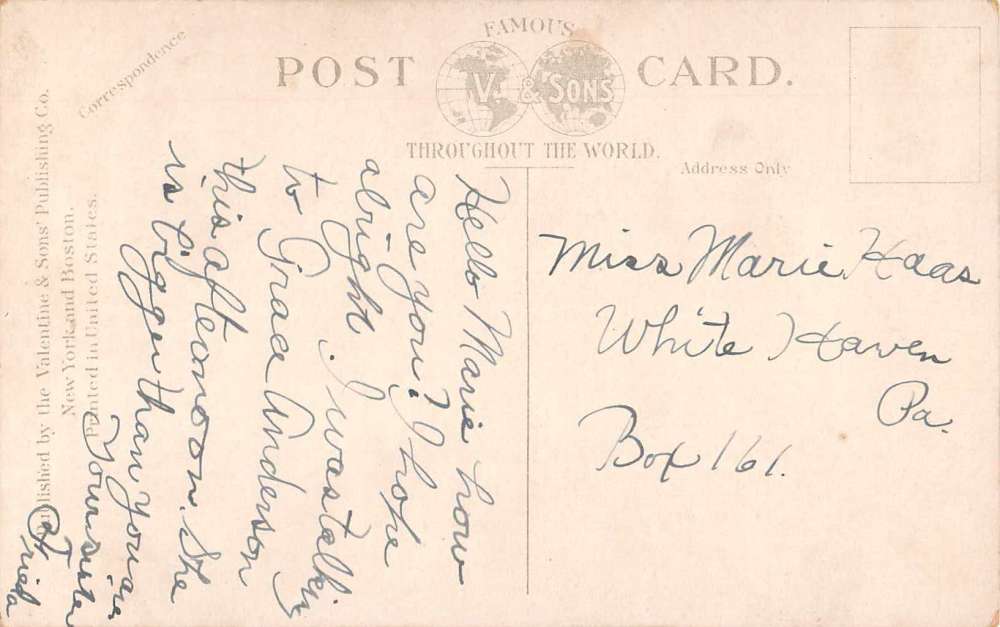 FAMOUS
POST CARD.
V. & SONS
THROUGHOUT THE WORLD.
Correspondence
Address Only
Published by the Valentine & Sons' Publishing Co.
New York and Boston.
Printed in United States.
Hello Marie how
are you? I hope
alright. I was talking
to Grace Anderson
this afternoon. She
is bigger than you are
Your sister
Frieda
Miss Marie Haas
White Haven
Pa.
Box 161.